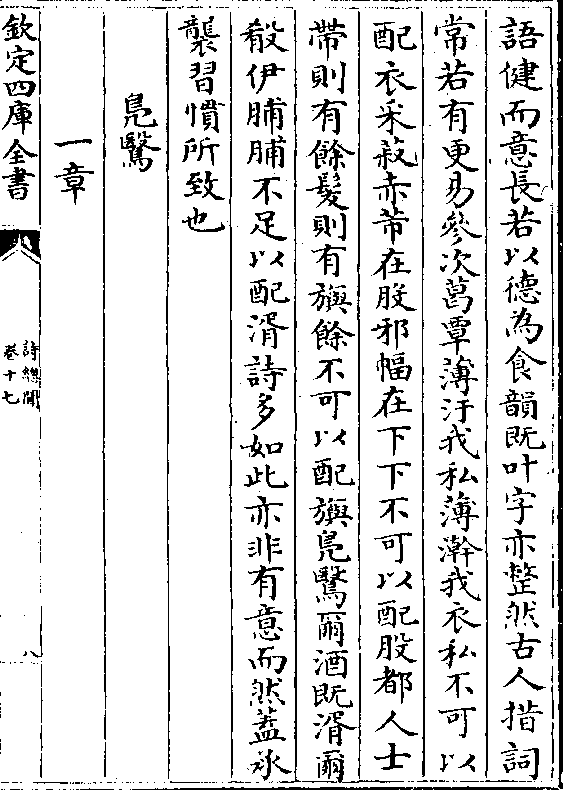 語健而意長若以德為食韻既叶字亦整然古人措詞
常若有更易參次葛覃薄汙我私薄澣我衣私不可以
配衣采菽赤芾在股邪幅在下下不可以配股都人士
帶則有餘髮則有旟餘不可以配旟鳧鷖爾酒既湑爾
殽伊脯脯不足以配湑詩多如此亦非有意而然蓋承
襲習慣所致也
鳧鷖
一章
欽定四庫全書
詩總聞
卷十七
八